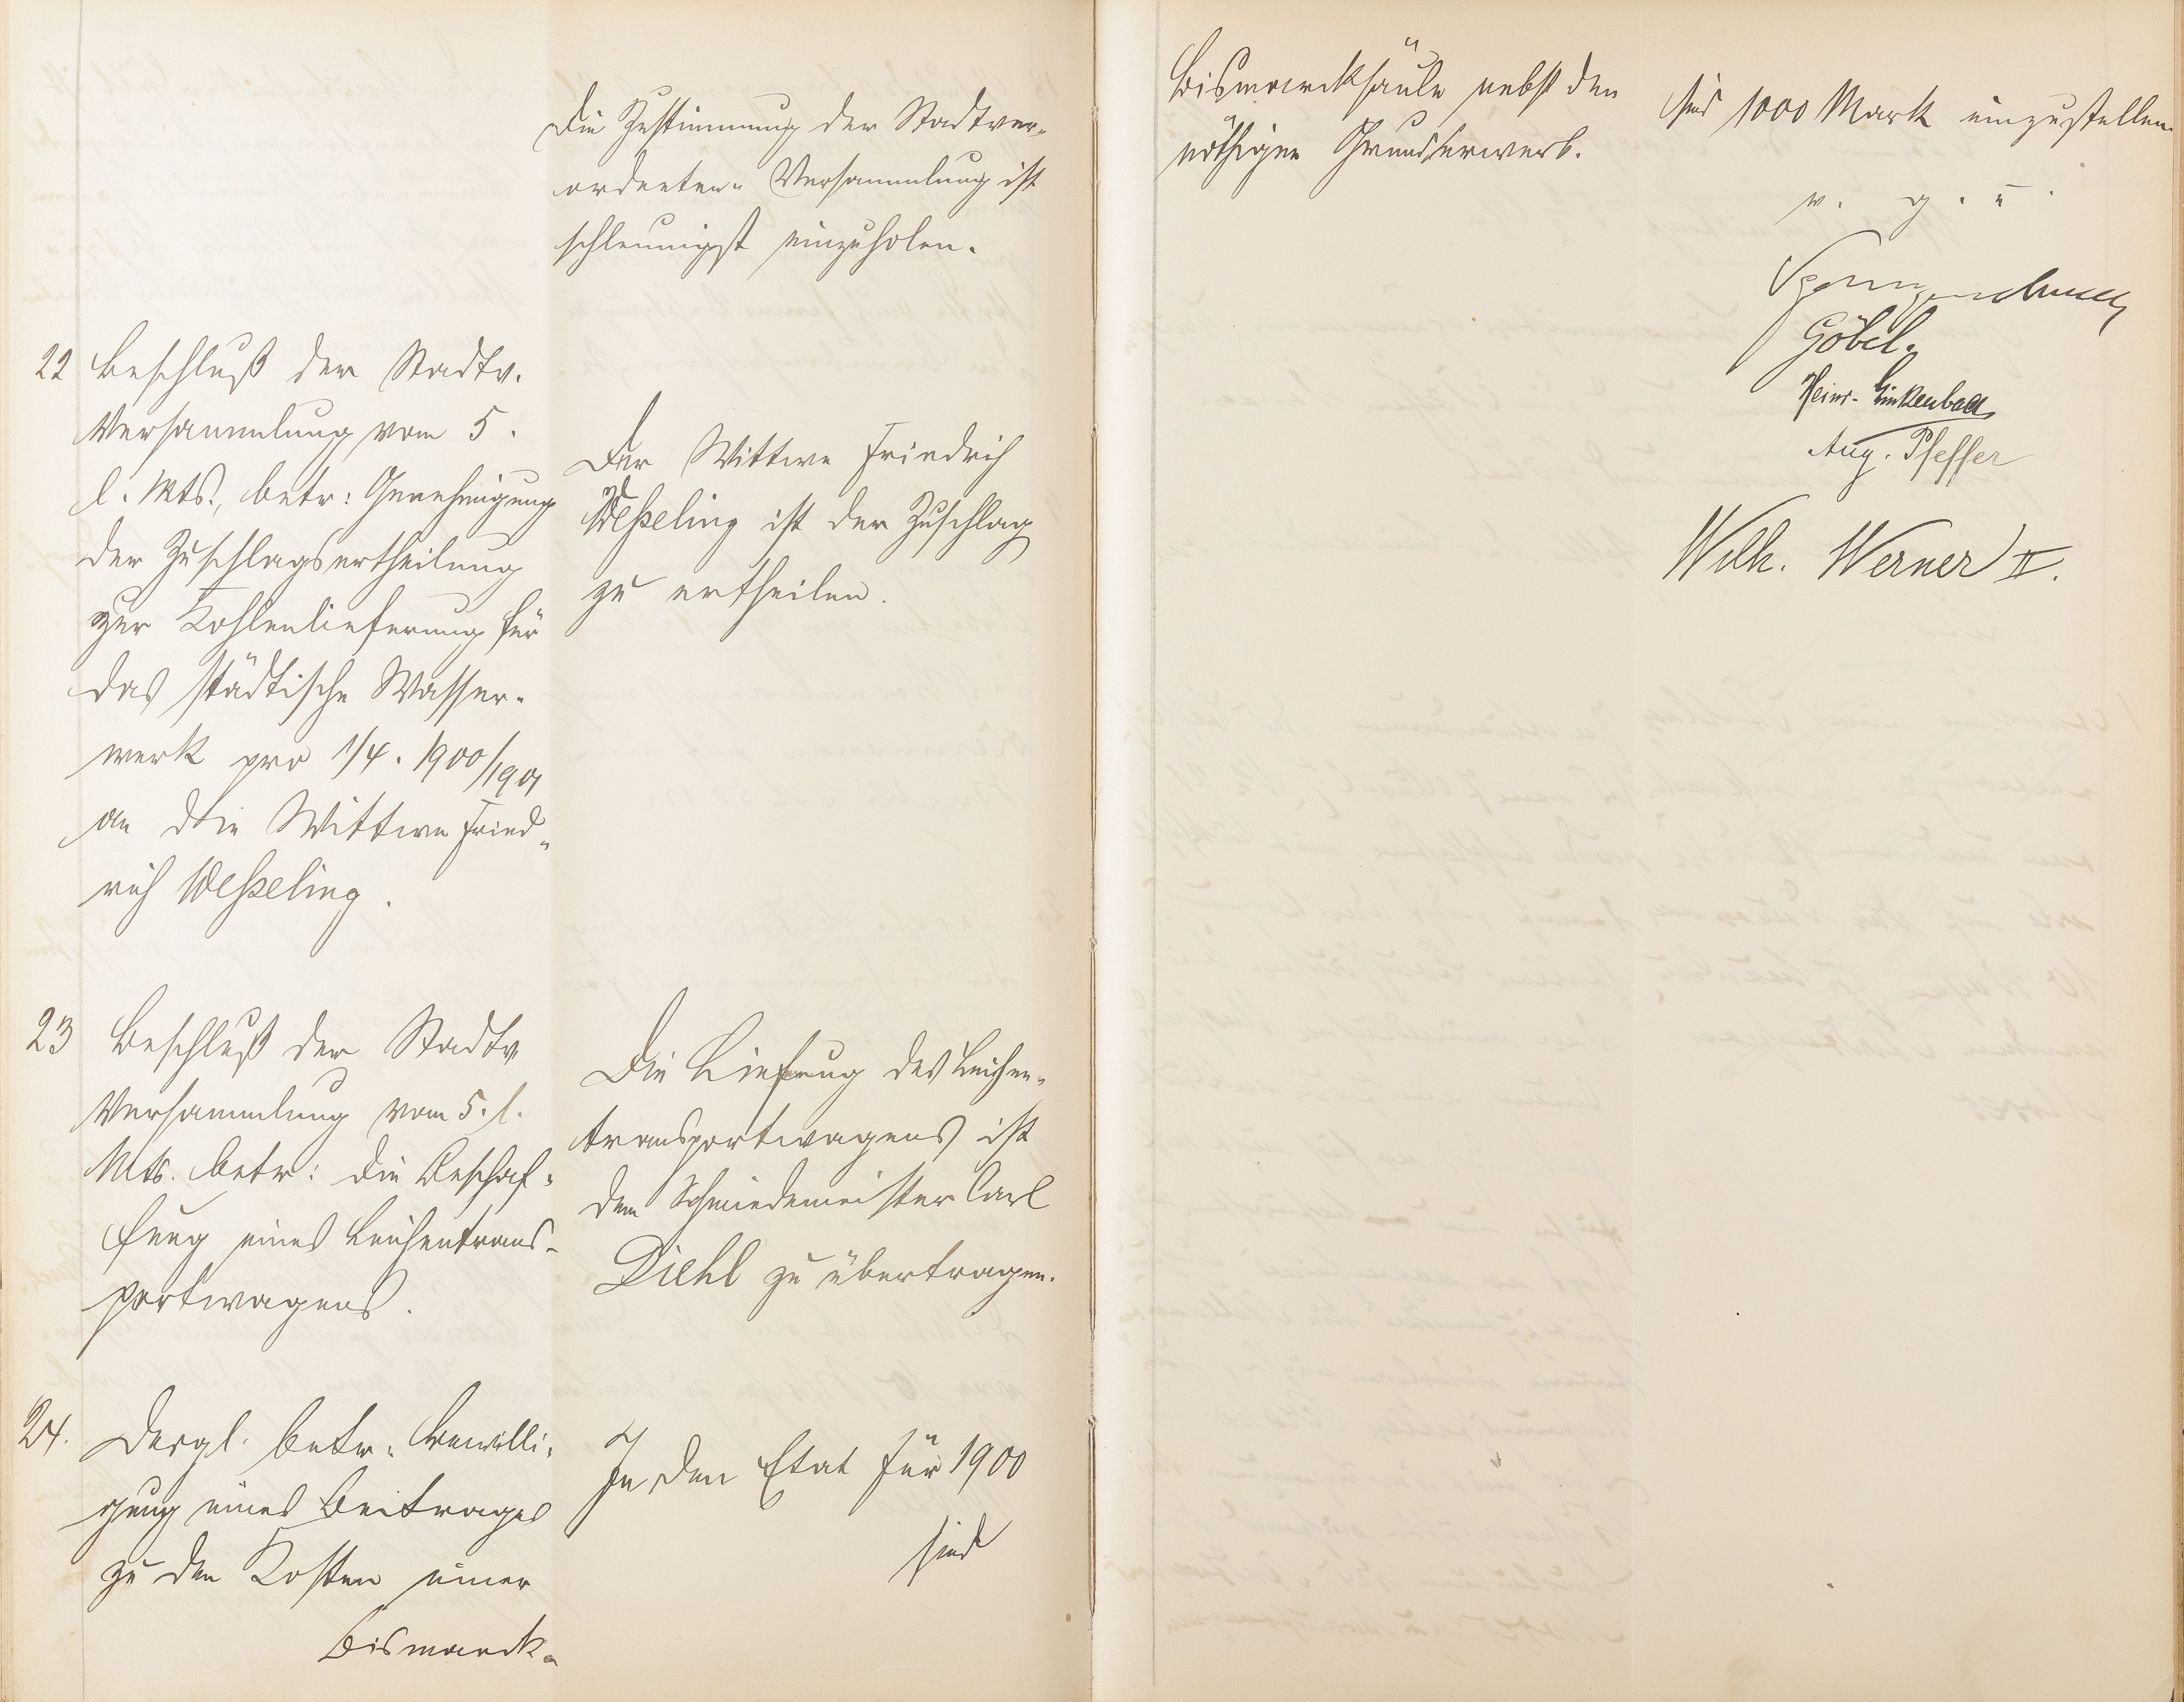 Die Zustimmung der Stadtver-
ordneten-Versammlung ist
schleunigst einzuholen.
22 Beschluß der Stadtv.
Versammlung vom 5.
l. Mts., betr: Genehmigung
der Zuschlagsertheilung
zur Kohlenlieferung für
das städtische Wasser-
werk pro 1/4. 1900/1901
an die Wittwe Fried-
rich Weßeling.
Der Wittwe Friedrich
Weßeling ist der Zuschlag
zu ertheilen.
23 Beschluß der Stadtv
Versammlung vom 5. l.
Mts. betr: die Beschaf-
fung eines Leichentrans-
portwagens.
Die Liefrung des Leichen-
transportwagens ist
dem Schmiedemeister Carl
Diehl zu übertragen.
24. Desgl. betr. Bewilli-
gung eines Beitrages
zu den Kosten einer
Bismarck-
In den Etat für 1900
sind
Bismarcksäule nebst den
nöthigen Grunderwerb.
sind 1000 Mark einzustellen.
v. g. u.
Göbel.
Heinr. Linkenbach
Aug. Pfeffer
Wilh. Werner II.